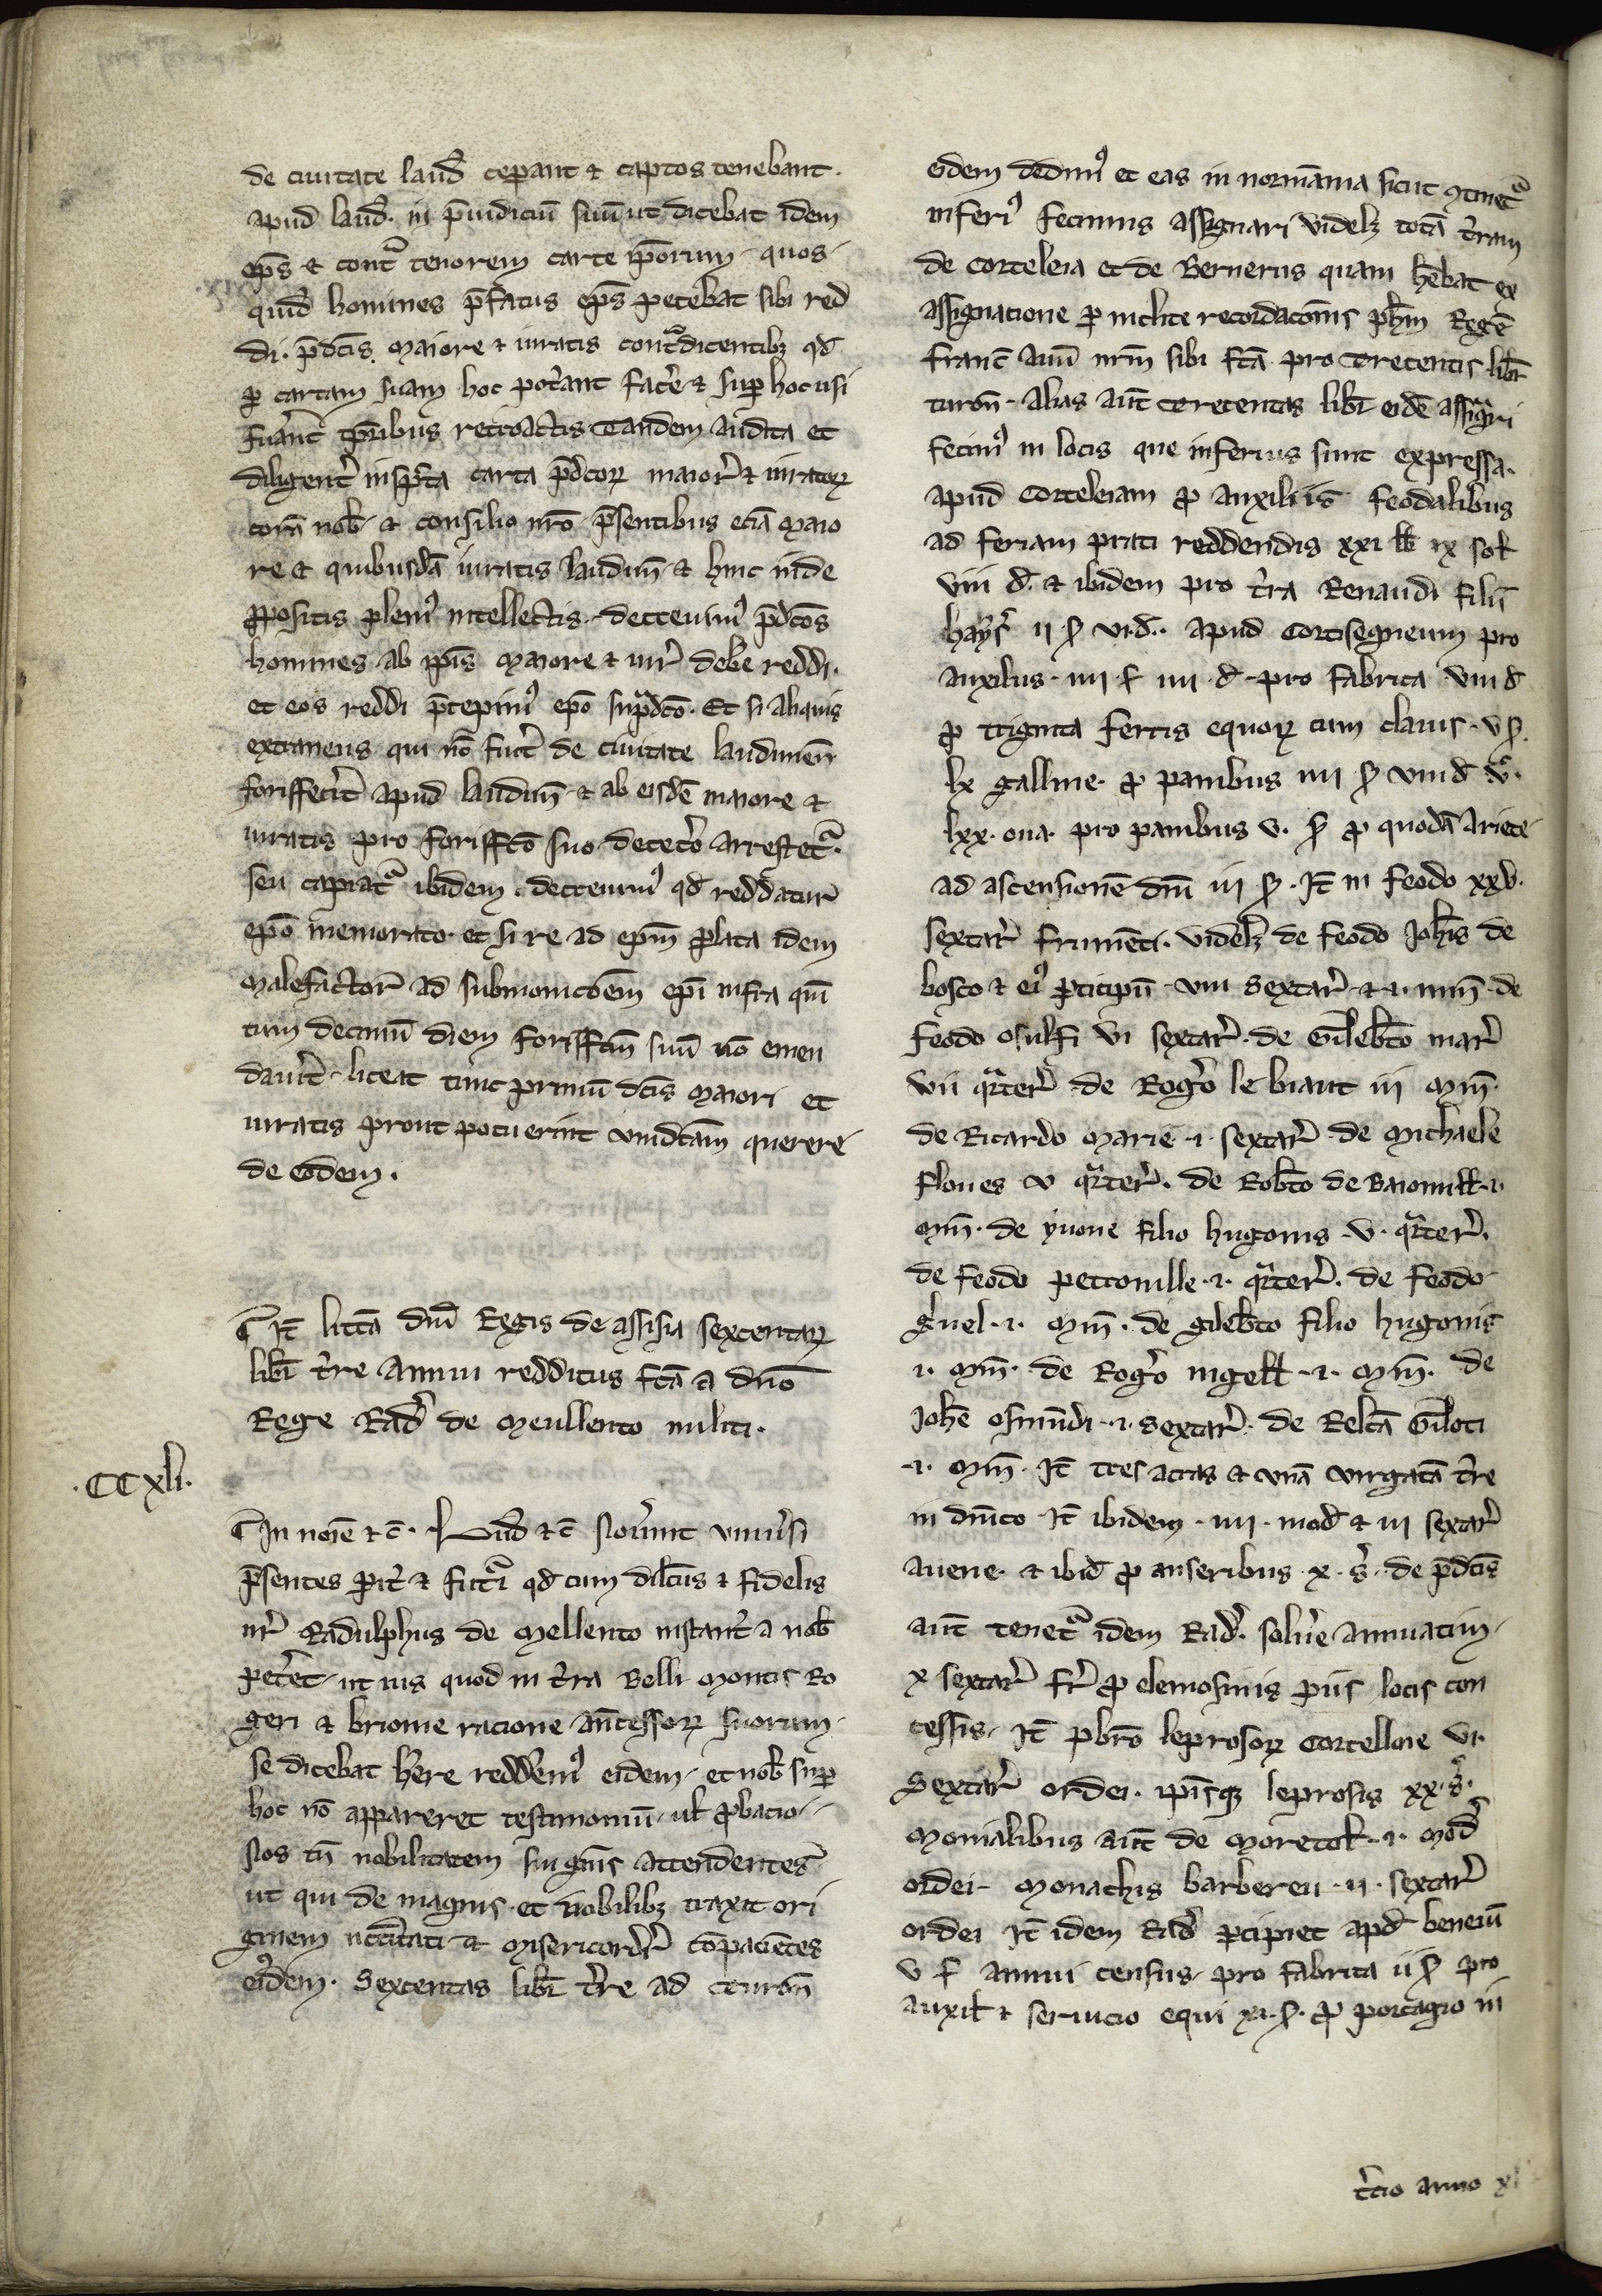 de ciuitate laud̄ ceperant ⁊ captos tenebant.
apud laud̄. in p̄iudiciū suū ut dicebat idem
ep̄s ⁊ cont̃ tenorem carte ip̄orum. quos
quid̄ homines p̄fatus ep̄s petebat sibi red
di. p̄dc̄is. maiore ⁊ iuratis cont̃dicentibꝫ qd̄
ꝑ cartam suam hoc pot̾ant fac̾e ⁊ suꝑ hoc usi
fu̾ant tꝑibus retroactis. Tandem audita et
diligent̾ inspc̄ta carta p̄dc̄oꝝ maior̾ ⁊ iuratoꝝ
corā nob̄. ⁊ consilio nr̄o. p̄sentibus eciā maio
re ⁊ quibusdā iuratis laudun̄. ⁊ hinc inde
ꝓpositis pleniꝰ intellectis. decreuimꝰ p̄dc̄os
homines ab ip̄is maiore ⁊ iur̾ debe reddi.
et eos reddi p̄cepimꝰ ep̄o sup̃dc̄o. Et si aliquis
extraneus qui nō fu̾it de ciuitate laudunen̄
foriffec̾it apud laudun̄. ⁊ ab eisdē maiore ⁊
iuratis pro foriffc̄o suo decet̾o arrestet̃.
seu capiat̃ ibidem. decreuimꝰ qd̄ reddatur
ep̄o memorato. et si re ad ep̄m ꝑlata idem
malefactor ad submonicōem ep̄i infra quī
tum decimū diem foriffc̄m suū nō emen
dau̾it. liceat tunc primū dc̄is maiori et
iuratis prout potuerint vindc̄am querere
de eodem.
¶ Ir̄ litt̄a dn̄i Regis de assisia sexcentaꝝ
lib̄r t̾re annui redditus fc̄a a dn̄o
Rege Rad̾ de Meullento militi.
.CCxli.
¶ In noīe ⁊ c̄. Lud̄ ⁊ c̄ Nou̾int vniu̾si
p̄sentes ꝑit̾ ⁊ fut̃i qd̄ cum dilc̄us ⁊ fidelis
nr̄ Radulphus de Mellento instant̾ a nob̄
pet̾et. ut ius quod in t̾ra Belli montis Ro
geri ⁊ brionie racione an̄cessoꝝ suorum
se dicebat h̄ere redderemꝰ eidem. et nob̄ suꝑ
hoc nō appareret testimoniū. ul̄ ꝓbacio.
Nos tn̄ nobilitatem sui gn̄is attendentes
ut qui de magnis. et nobilibꝫ traxit ori
ginem nec̄citati. ⁊ misericordit̾ cōpacientes
eidem. Sexcentas lib̄r t̾re ad turon̄
eidem dedimꝰ et eas in normānia sicut ꝯtinet̃
inferiꝰ fecimus assignari videlꝫ totā t̾ram
de Corteleia et de Bernerus quam h̄ebat ex
assignacione ꝑ inclite recordacōnis ph̄m Regē
franc̄ auū nr̄m sibi fc̄a. pro trecentis. lib̄r
turon̄. Alias aūt trecentas lib̄r eidē assig̃ri
fecimꝰ in locis que inferius sunt expressa.
apud Corteleiam ꝓ auxiliis feodalibus
ad feriam prati reddendis xxi ll̄ ix sol̄
viii d̄. ⁊ ibidem pro t̾ra Renaudi filii
hays̾ ii ẜ vi.d̄. apud Cortisegneum pro
auxiliis. iiii. ẜ iiii. d̄. pro fabrica viii d̄
ꝓ triginta ferris equoꝝ cum clauis. v ẜ.
lx galline. ꝓ panibus iiii ẜ viii d̄
lxx. oua. pro panibus v. ẜ ꝓ quodā ariete
ad ascensionē dn̄i iii ẜ. Ir̄ in feodo xxv.
sextar̾ frumēti. videlꝫ de feodo Joh̄is de
bosco ⁊ eiꝰ ꝑticipū. viii sextar̾. ⁊ .i. min̄. de
feodo osulfi vi sextar̾. de Gileb̄to mar̾
vii qr̃ter̾. de Rog̾o le biaut iii Min̄.
de Ricardo Marie .i. sextar̾. de Michaele
flones v qr̃ter̾. de Rob̄to de Baionuill̄ .i.
Min̄. de yuone filio hugonis. v. qr̃ter̾.
de feodo petronille .i. qr̃ter̾. de feodo
g̾uel .i. Min̄. de gileb̄to filio hugonis
.i. Min̄. de Rog̾o ingell̄ .i. Min̄. de
Joh̄e osmūdi .i. sextar̾. de Relc̄a Giloti
.i. Min̄. Ir̄ tres acras ⁊ vnā virgatā t̾re
in dn̄ico. Ir̄ ibidem. iiii. mod̄ ⁊ iii sextar̾
auene. ⁊ ibid̄ ꝓ anseribus .x. s̾. de p̄dc̄is
aūt tenet̃ idem Rad̾. solu̾e annuatim.
x sextar̾ fr̾ ꝓ elemosinis piis locis con
cessis. Ir̄ pb̄ro leprosoꝝ Cortelleie vi.
Sextar̾ ordei. ip̄isqꝫ leprosis xx. s̾.
Monialibus aūt de Moretol̄ .i. Mod̄
ordei. Monachis barberen .ii. sextar̾
ordei Ir̄ idem Rad̾ ꝑcipiet apd̄ beneiū
v ẜ annui census. pro fabrica ii ẜ pro
auxil̄ ⁊ seruicio equi xi. ẜ. ꝓ portagio in
t̾cio anno